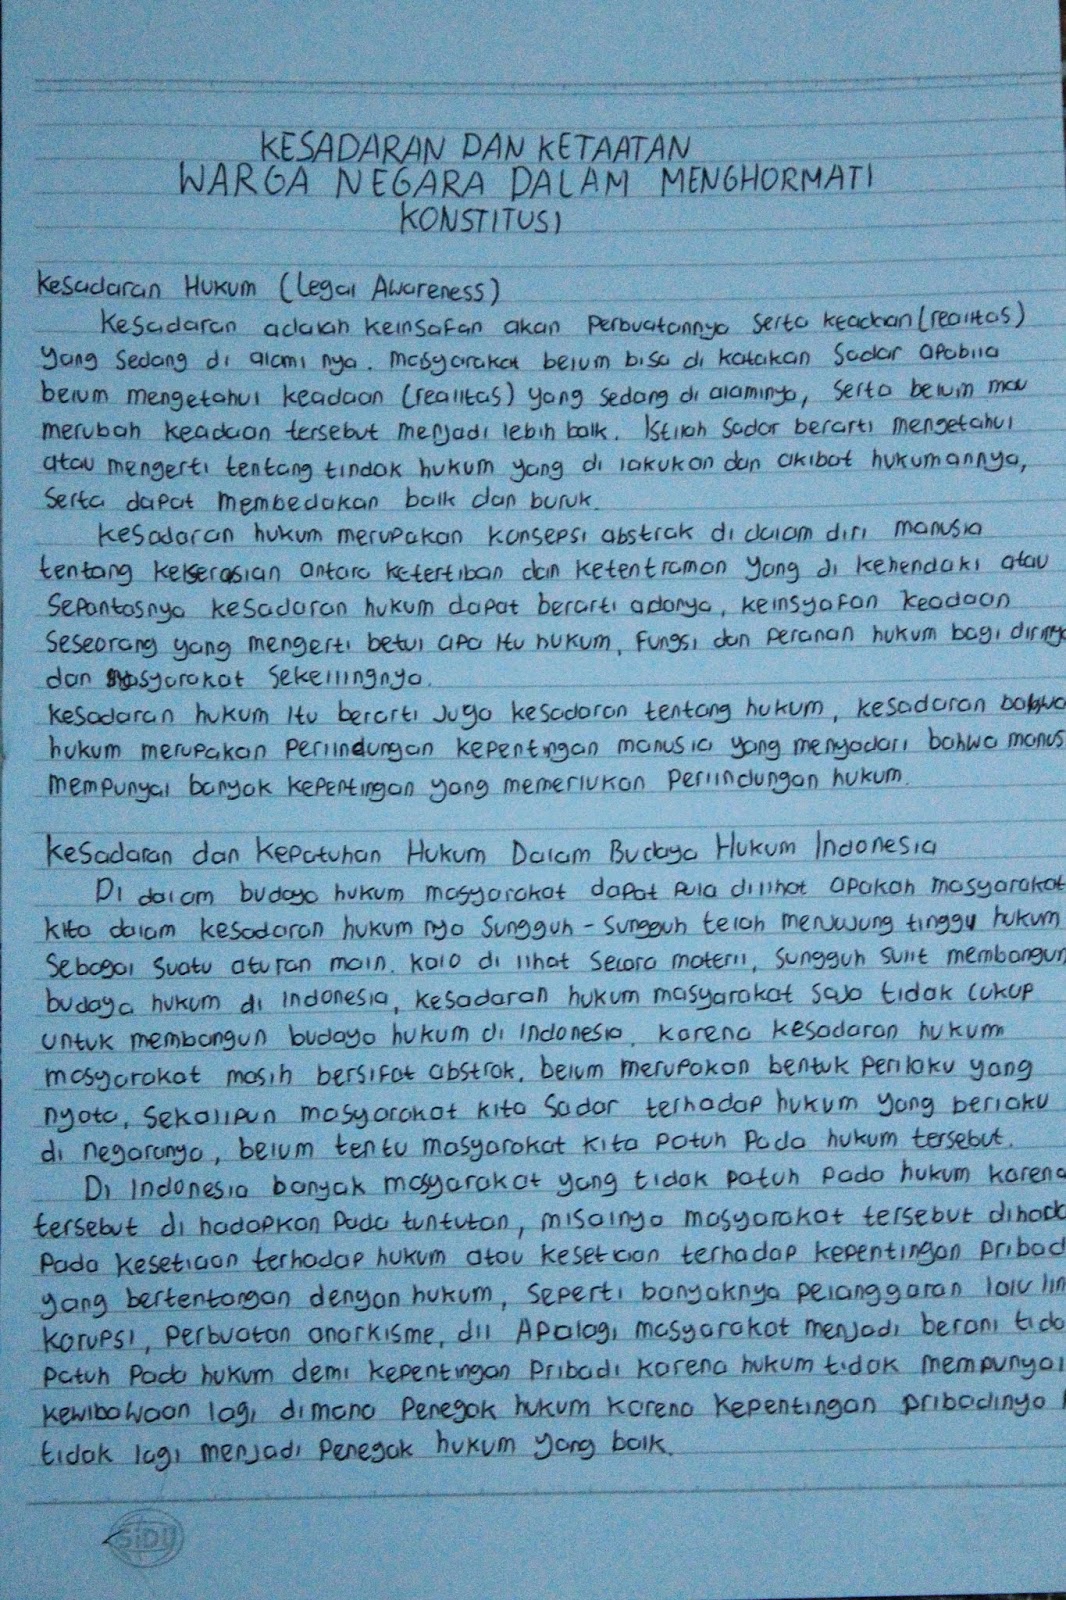 KESADARAN DAN KETAATAN
WARGA NEGARA DALAM MENGHORMATI
KONSTITUSI
Kesadaran Hukum (Legal Awareness)
Kesadaran adalah keinsafan akan perbuatannya serta keadaan (realitas)
yang sedang di alami nya. Masyarakat belum bisa di katakan sadar apabila
belum mengetahui keadaan (realitas) yang sedang di alaminya, serta belum mau
merubah keadaan tersebut menjadi lebih baik. Istilah sadar berarti mengetahui
atau mengerti tentang tindak hukum yang di lakukan dan akibat hukumannya,
serta dapat membedakan baik dan buruk.
Kesadaran hukum merupakan konsepsi abstrak di dalam diri manusia
tentang keserasian antara ketertiban dan ketentraman yang di kehendaki atau
sepantasnya kesadaran hukum dapat berarti adanya, keinsyafan keadaan
seseorang yang mengerti betul apa itu hukum, fungsi dan peranan hukum bagi dirinya
dan masyarakat sekelilingnya.
Kesadaran hukum itu berarti juga kesadaran tentang hukum, kesadaran bahwa
hukum merupakan perlindungan kepentingan manusia yang menyadari bahwa manus
mempunyai banyak kepentingan yang memerlukan perlindungan hukum.
Kesadaran dan Kepatuhan Hukum Dalam Budaya Hukum Indonesia
Di dalam budaya hukum masyarakat dapat pula dilihat apakah masyarakat
kita dalam kesadaran hukum nya sungguh-sungguh telah menjunjung tinggi hukum
sebagai suatu aturan main. Kalo di lihat secara materil, sungguh sulit membangun
budaya hukum di Indonesia, kesadaran hukum masyarakat saja tidak cukup
untuk membangun budaya hukum di Indonesia. karena kesadaran hukum
masyarakat masih bersifat abstrak, belum merupakan bentuk perilaku yang
nyata, sekalipun masyarakat kita sadar terhadap hukum yang berlaku
di negaranya, belum tentu masyarakat kita patuh pada hukum tersebut.
Di Indonesia banyak masyarakat yang tidak patuh pada hukum karena
tersebut di hadapkan pada tuntutan, misalnya masyarakat tersebut dihad
pada kesetiaan terhadap hukum atau kesetiaan terhadap kepentingan pribad
yang bertentangan dengan hukum, seperti banyaknya pelanggaran lalu lin
korupsi, perbuatan anarkisme, dll Apalagi masyarakat menjadi berani tida
patuh pada hukum demi kepentingan pribadi karena hukum tidak mempunyai
kewibawaan lagi dimana penegak hukum karena kepentingan pribadinya
tidak lagi menjadi penegak hukum yang baik.
SiDU